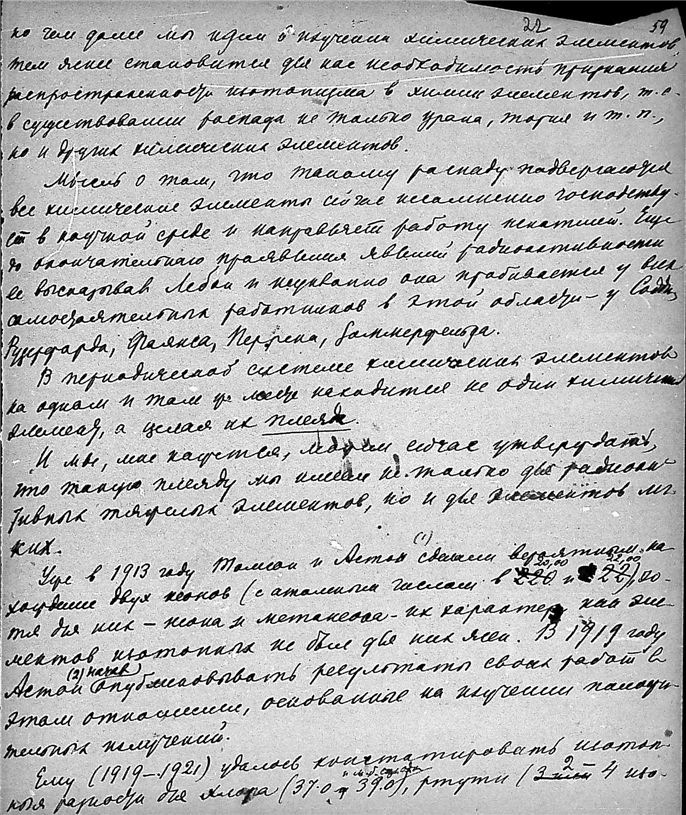 22 59
но чем далее мы идем в изучении химических элементов,
тем яснее становится для нас необходимость признания
распространенности изотопизма в химии элементов, т.е.
в существовании распада не только урана, тория и т.п.,
но и других химических элементов.
Мысль о том, что такому распаду подвергаются
все химические элементы сейчас несомненно господству-
ет в научной среде и направляет работу искателей. Еще
до окончательного проявления явлений радиоактивности
ее высказывал Лебон и неуклонно она пробивается у всех
самостоятельных работников в этой области – у Содди,
Рутерфорда, Фаянса, Перрена, Зоммерфельда.
В периодической системе химических элементов
на одном и том же месте находится не один химический
элемент, а целая их плеяда.
И мы, мне кажется, можем сейчас утверждать,
что такую плеяду мы имеем не только для радиоак-
тивных тяжелых элементов, но и для элементов лег-
ких.
Уже в 1913 году Томсон и Астон (1) сделали вероятным на-
хождение двух неонов (с атомным числом в 20,00 и 22,00), хо-
тя для них – неона и метанеона – их характер как эле-
ментов изотопных не был для них ясен. В 1919 году
Астон (2) начал опубликовывать результаты своих работ в
этом отношении, основанные на изучении положи-
тельных излучений.
Ему (1919–1921) удалось констатировать изотоп-
ные разности для хлора (37.0 и 39.0), ртути (2 – 4 изо-